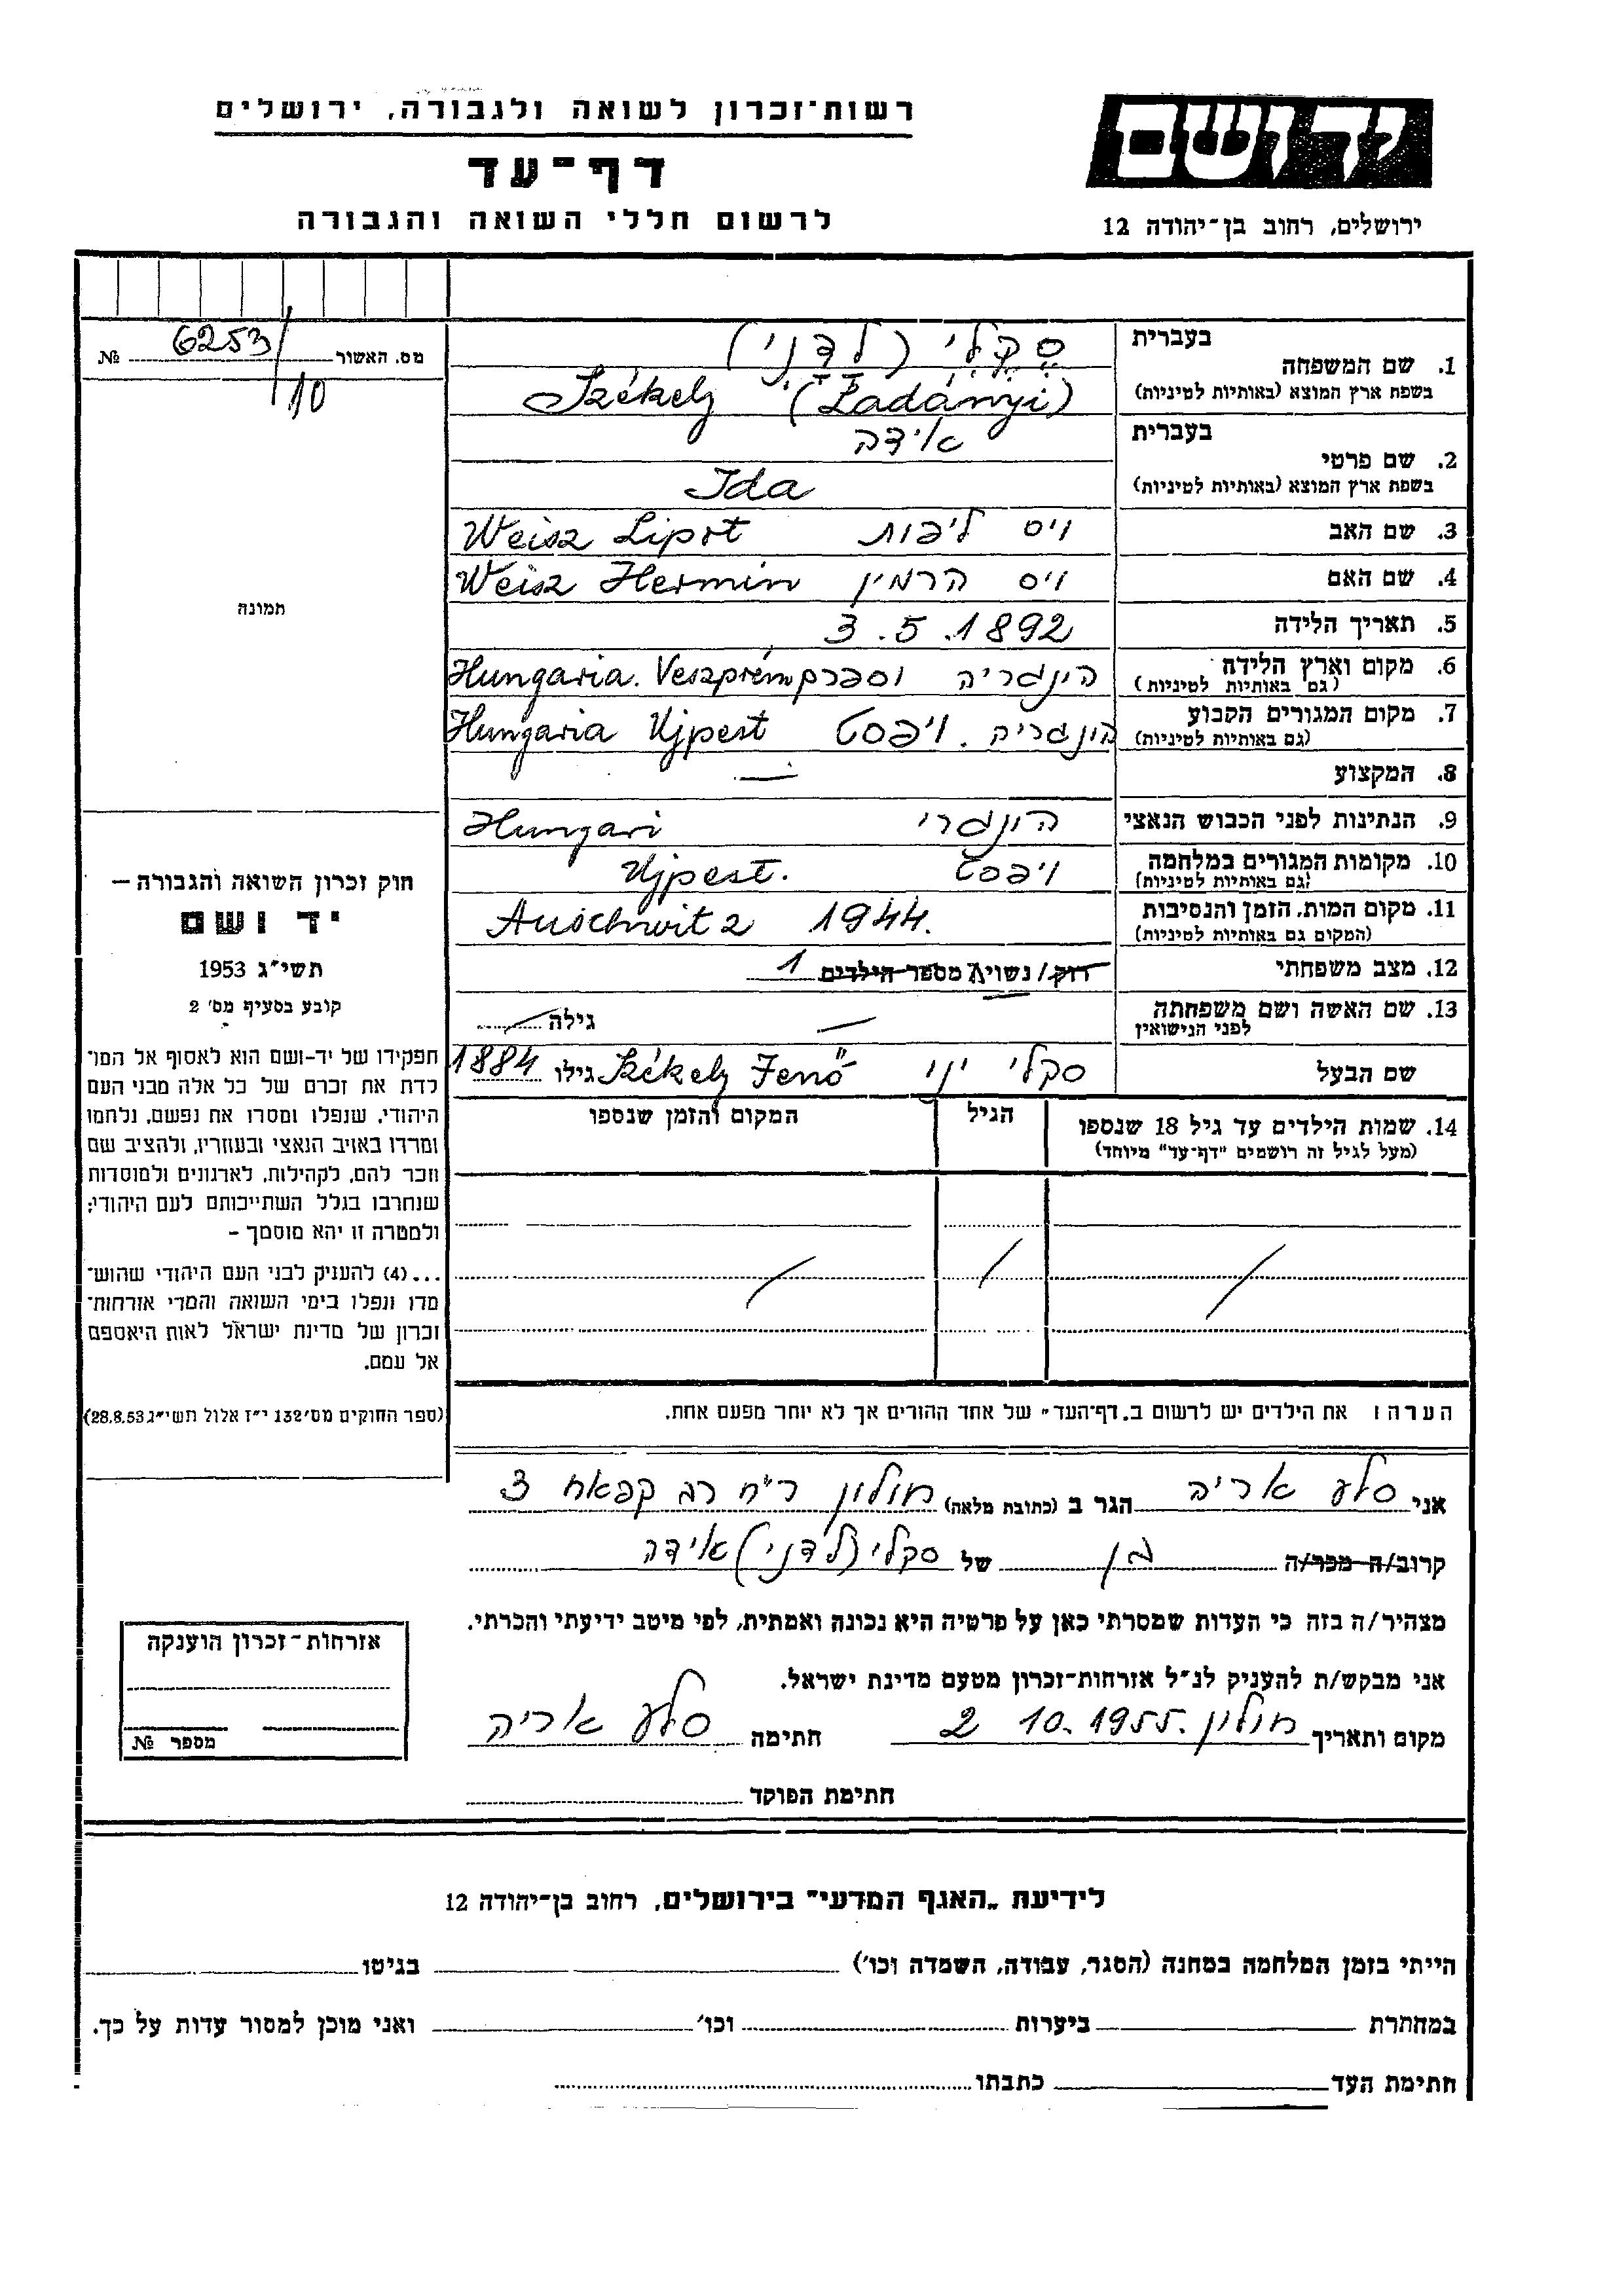 יד ושם
רשות-זכרון לשואה ולגבורה, ירושלים
דף-עד
לרשום חללי השואה והגבורה
ירושלים, רחוב בן-יהודה 12
מס. האשור 6253/10 №
בעברית
1. שם המשפחה סקלי (לדני)
בשפת ארץ המוצא (באותיות לטיניות) Székely (Ladányi)
בעברית
2. שם פרטי אידה
בשפת ארץ המוצא (באותיות לטיניות) Ida
3. שם האב ויס ליפות Weisz Lipót
4. שם האם ויס הרמין Weisz Hermin
5. תאריך הלידה 3.5.1892
6. מקום וארץ הלידה הינגריה וספרם Hungaria. Veszprém
(גם באותיות לטיניות)
7. מקום המגורים הקבוע הונגריה. ויפסט Hungaria Ujpest
(גם באותיות לטיניות)
8. המקצוע —
9. הנתינות לפני הכבוש הנאצי הונגרי Hungari
10. מקומות המגורים במלחמה ויפסט Ujpest.
(גם באותיות לטיניות)
11. מקום המות, הזמן והנסיבות Auschwitz 1944.
(המקום גם באותיות לטיניות)
12. מצב משפחתי רוק/נשוי/ה מספר הילדים 1
13. שם האשה ושם משפחתה — גילה —
לפני הנישואין
שם הבעל סקלי יני Székely Jenő גילו 1884
14. שמות הילדים עד גיל 18 שנספו הגיל המקום והזמן שנספו
(מעל לגיל זה רושמים "דף-עד" מיוחד)
הערה: את הילדים יש לרשום ב„דף-העד" של אחד ההורים אך לא יותר מפעם אחת.
תמונה
חוק זכרון השואה והגבורה —
יד ושם
תשי"ג 1953
קובע בסעיף מס' 2
תפקידו של יד-ושם הוא לאסוף אל המו־
לדת את זכרם של כל אלה מבני העם
היהודי, שנפלו ומסרו את נפשם, נלחמו
ומרדו באויב הנאצי ובעוזריו, ולהציב שם
וזכר להם, לקהילות, לארגונים ולמוסדות
שנחרבו בגלל השתייכותם לעם היהודי;
ולמטרה זו יהא מוסמך –
...(4) להעניק לבני העם היהודי שהוש־
מדו ונפלו בימי השואה והמרי אזרחות־
זכרון של מדינת ישראל לאות היאספם
אל עמם.
(ספר החוקים מס' 132 י"ז אלול תשי"ג 28.8.53)
אני סלע אריה הגר ב (כתובת מלאה) חולון ר"ח רג קפאח 3
קרוב/ה מכר/ה בן של סקלי (לדני) אידה
מצהיר/ה בזה כי העדות שמסרתי כאן על פרטיה היא נכונה ואמתית, לפי מיטב ידיעתי והכרתי.
אני מבקש/ת להעניק לנ"ל אזרחות-זכרון מטעם מדינת ישראל.
מקום ותאריך חולון 2 10.1955. חתימה סלע אריה
חתימת הפוקד
אזרחות-זכרון הוענקה
מספר №
לידיעת „האגף המדעי" בירושלים, רחוב בן-יהודה 12
הייתי בזמן המלחמה במחנה (הסגר, עבודה, השמדה וכו') בגיטו
במחתרת ביערות וכו' ואני מוכן למסור עדות על כך.
חתימת העד כתבתו